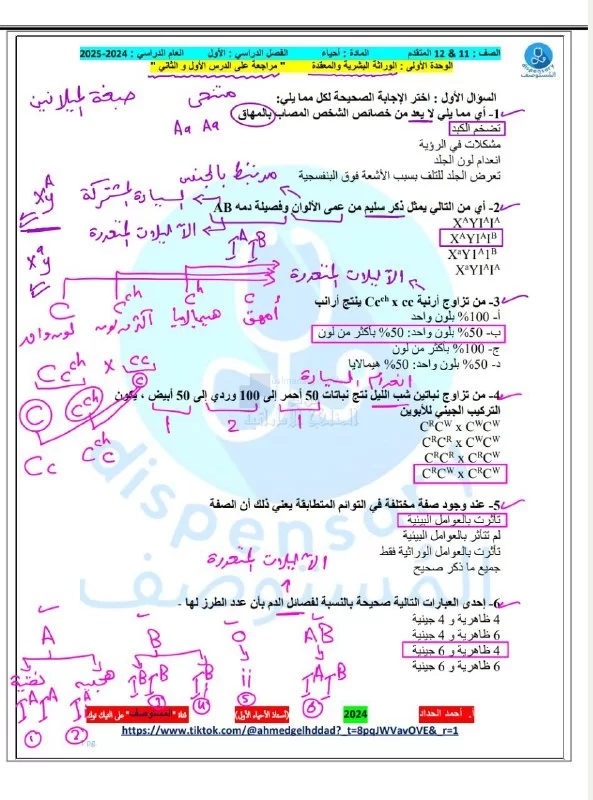 الصف : 11 & 12 المتقدم المادة : أحياء الفصل الدراسي : الأول العام الدراسي : 2024-2025
الوحدة الأولى : الوراثة البشرية والمعقدة " مراجعة على الدرس الأول و الثاني "
السؤال الأول : اختر الإجابة الصحيحة لكل مما يلي:
متنحي صبغة الميلانين
1- أي مما يلي لا يعد من خصائص الشخص المصاب بالمهاق
Aa Aa
تضخم الكبد
مشكلات في الرؤية
انعدام لون الجلد
تعرض الجلد للتلف بسبب الأشعة فوق البنفسجية
مرتبط بالجنس
2- أي من التالي يمثل ذكر سليم من عمى الألوان وفصيلة دمه AB
السيادة المشتركة
XᴬY
XᴬYIᴬIᴬ
XᴬYIᴬIᴮ
XᵃYIᴬIᴮ
XᵃYIᴬIᴬ
الآليلات المتعددة
IᴬIᴮ
Xᵃy
الآليلات المتعددة
3- من تزاوج أرنبة Ccᶜʰ x cc ينتج أرانب
أ- 100% بلون واحد
ب- 50% بلون واحد: 50% بأكثر من لون
ج- 100% بأكثر من لون
د- 50% بلون واحد: 50% هيمالايا
C Cᶜʰ Cʰ c
لون واحد أكثر من لون هيمالايا أمهق
Ccᶜʰ x cc
C Cᶜʰ c
Cc Cᶜʰc
انعدام السيادة
4- من تزاوج نباتين شب الليل نتج نباتات 50 أحمر إلى 100 وردي إلى 50 أبيض ، يكون
التركيب الجيني للأبوين
1 2 1
CᴿCᵂ x CᵂCᵂ
CᴿCᴿ x CᵂCᵂ
CᴿCᴿ x CᴿCᵂ
CᴿCᵂ x CᴿCᵂ
5- عند وجود صفة مختلفة في التوائم المتطابقة يعني ذلك أن الصفة
تأثرت بالعوامل البيئية
لم تتأثر بالعوامل البيئية
تأثرت بالعوامل الوراثية فقط
جميع ما ذكر صحيح
الآليلات المتعددة
6- إحدى العبارات التالية صحيحة بالنسبة لفصائل الدم بأن عدد الطرز لها -
4 ظاهرية و 4 جينية
6 ظاهرية و 4 جينية
4 ظاهرية و 6 جينية
6 ظاهرية و 6 جينية
A B O AB
نقية هجينة
IᴬIᴬ Iᴬi IᴮIᴮ Iᴮi ii IᴬIᴮ
1 2 3 4 5 6
أ. احمد الحداد 2024 (أستاذ الأحياء الأول) قناة "المستوصف" على التيك توك
https://www.tiktok.com/@ahmedgelhddad?_t=8pqJWVavOVE&_r=1
dispensary
المستوصف